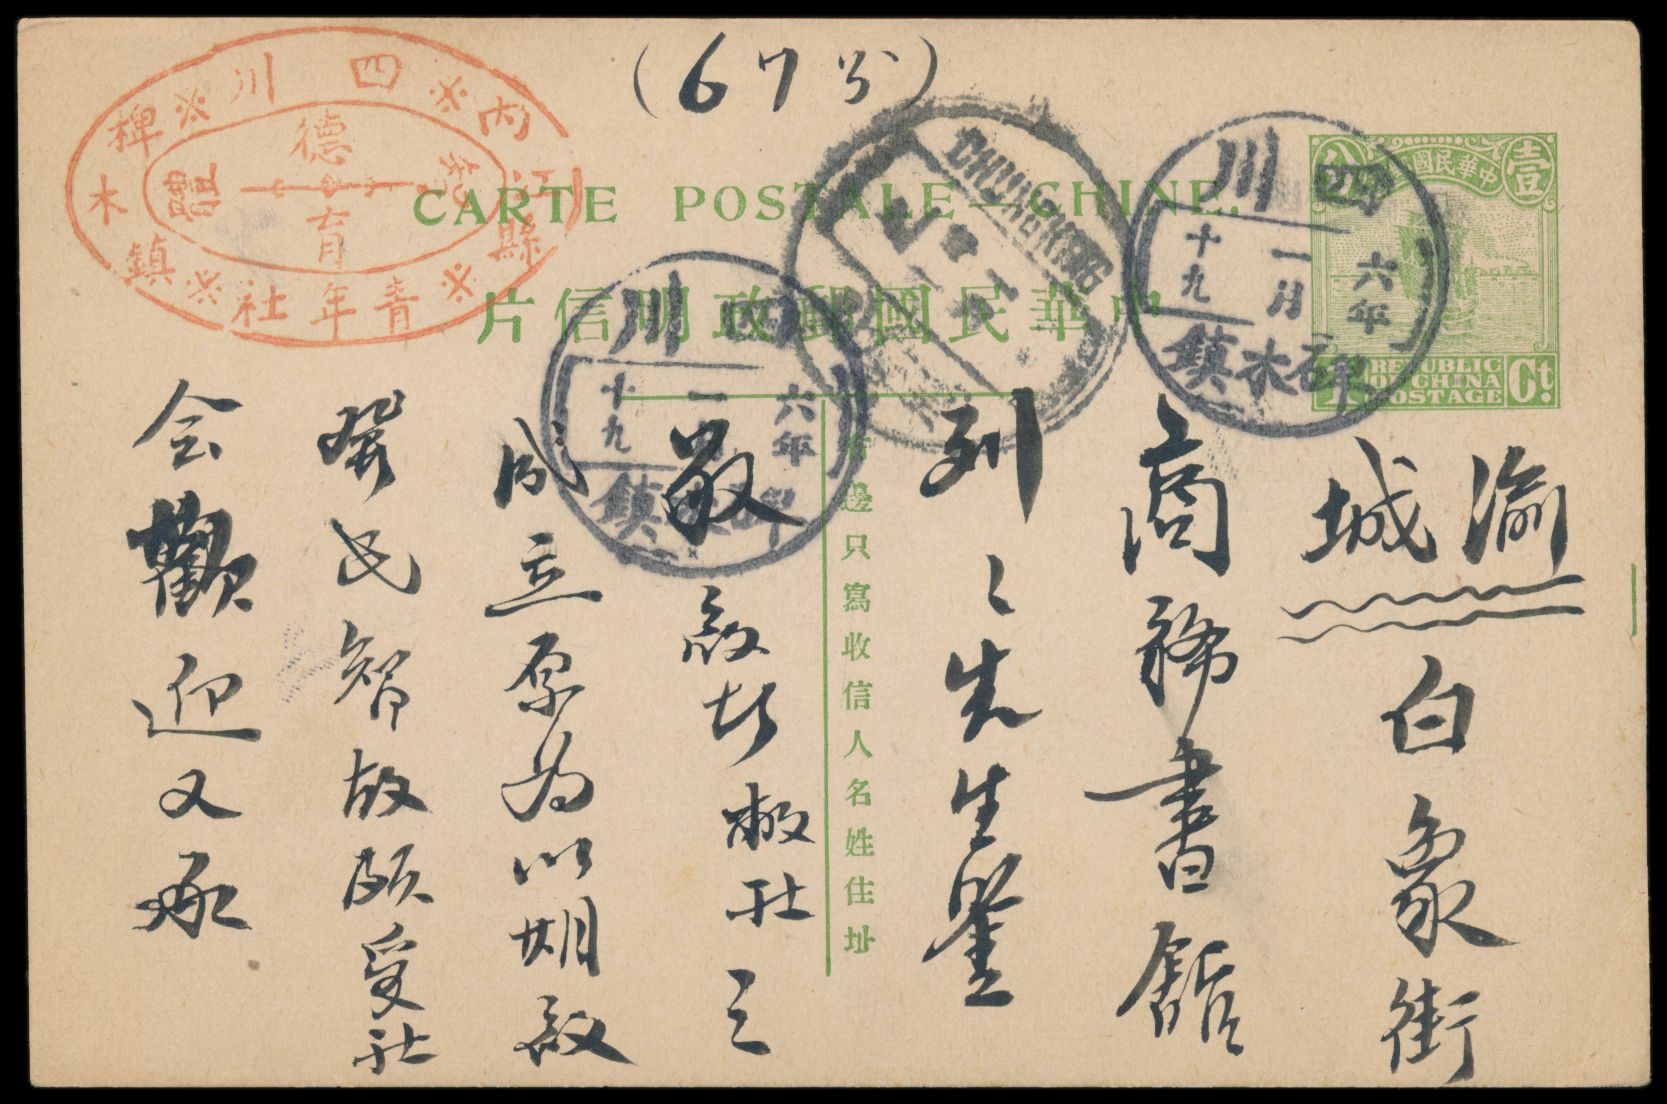 (67分)
四川
內江縣
椑木鎮
青年社
德育
CARTE POSTALE—CHINE.
中華民國郵政明信片
中華民國
壹分
1 Ct
REPUBLIC
OF CHINA
POSTAGE
四川
六年
一月
十九
椑木鎮
CHUNGKING
四川
六年
一月
十九
椑木鎮
右邊只寫收信人名姓住址
渝城白象街
商務書館
列々先生鑒
敬啟者敝社之
成立原為以期啟
發民智故頗受社
会歡迎又承